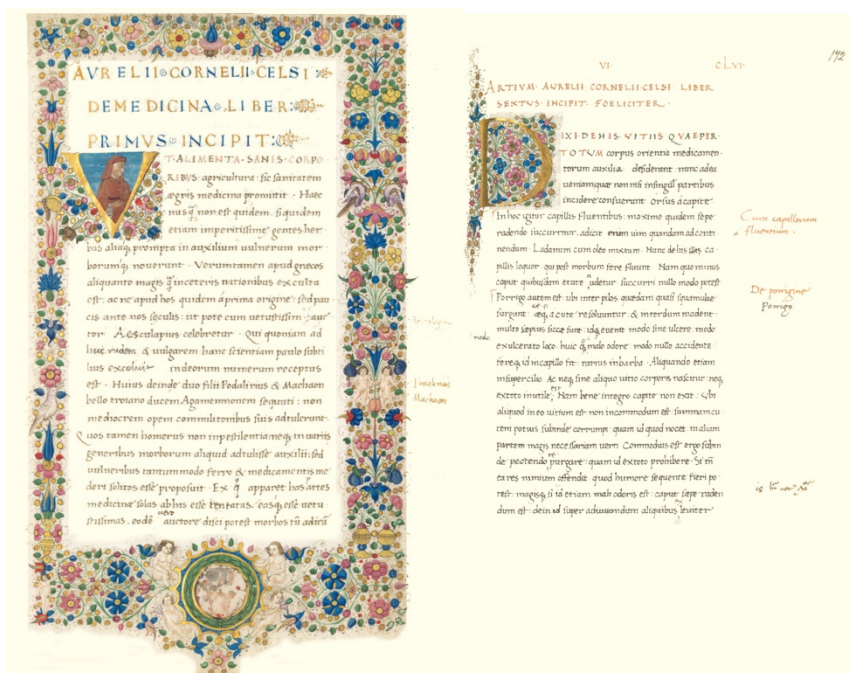 AVRELII CORNELII CELSI
DE MEDICINA LIBER
PRIMVS INCIPIT
VT ALIMENTA SANIS CORPO
RIBVS agricultura: sic sanitatem
ægris medicina promittit. Haec
nusq̃ non est quidem. siquidem
etiam imperitissimę gentes her
bas aliaq; prompta in auxilium uulnerum mor
borumq; nouerunt. Verumtamen apud grecos
aliquanto magis q̃ in ceteris nationibus exculta
est: ac ne apud hos quidem a prima origine: sed pau
cis ante nos seculis: ut pote cum uetustissimꝰ auc
tor Aesculapius celebretur. Qui quoniam ad
huc rudem & uulgarem hanc scientiam paulo subti
lius excoluit in deorum numerum receptus
est. Huius deinde duo filii Podalirius & Machaon
bello troiano ducem Agamemnonem sequuti: non
mediocrem opem commilitonibus suis adtulerunt.
Quos tamen homerus non in pestilentia neq; in uariis
generibus morborum aliquid adtulisse auxilii: sed
uulneribus tantummodo ferro & medicamentis me
deri solitos esse proposuit. Ex q̃ apparet has artes
medicine solas ab his esse tentatas. easq; esse uetu
stissimas. eodē uero auctore disci potest morbos tũ ad irā
Machaon
VI CLVI
192
ARTIVM AVRELII CORNELII CELSI LIBER
SEXTVS INCIPIT FOELICITER
DIXI DE HIS VITIIS QVAE PER
TOTVM corpus orientia medicamen
torum auxilia desiderent nunc ad ea
ueniam quae non nisi in singulꝭ partibus
incidere consuerunt orsus a capite
In hoc igitur capillis fluentibus: maxime quidem sepe
radendo succurritur. adicit eram uim quandam ad conti
nendum. Ladanum cum oleo mixtum. Nunc de his illis ca
pillis loquor qui post morbum fere fluunt. Nam quo minus
caput quibusdam etate nudetur succurri nullo modo potest
Porrigo autem est ubi inter pilos quædam quasi squamulae
surgunt eæq; a cute resoluuntur & interdum madent:
multo sæpius siccæ sunt. idq; euenit modo sine ulcere. modo
exulcerato loco. huic q̃ malo odore: modo nullo accidente.
fereq; id in capillo fit rarius in barba. Aliquando etiam
in supercilio. Ac neq; sine aliquo uitio corporis nascitur neq;
ex toto inutile est. Nam bene integro capite non exit: Vbi
aliquod in eo uitium est non incommodum est: summam cu
tem potius subinde corrumpi. quam id quod nocet in aliam
partem magis necessariam uerti. Commodius est ergo subin
de pectendo purgare: quam id ex toto prohibere. Si tñ
ea res nimium offendit quod humore sequente fieri po
test: magisq; si is etiam mali odoris est: caput sæpe raden
dum est: dein id super adiuuandum aliquibus leuiter
modo
Cura capillorum
fluentium.
De porrigine
Porrigo